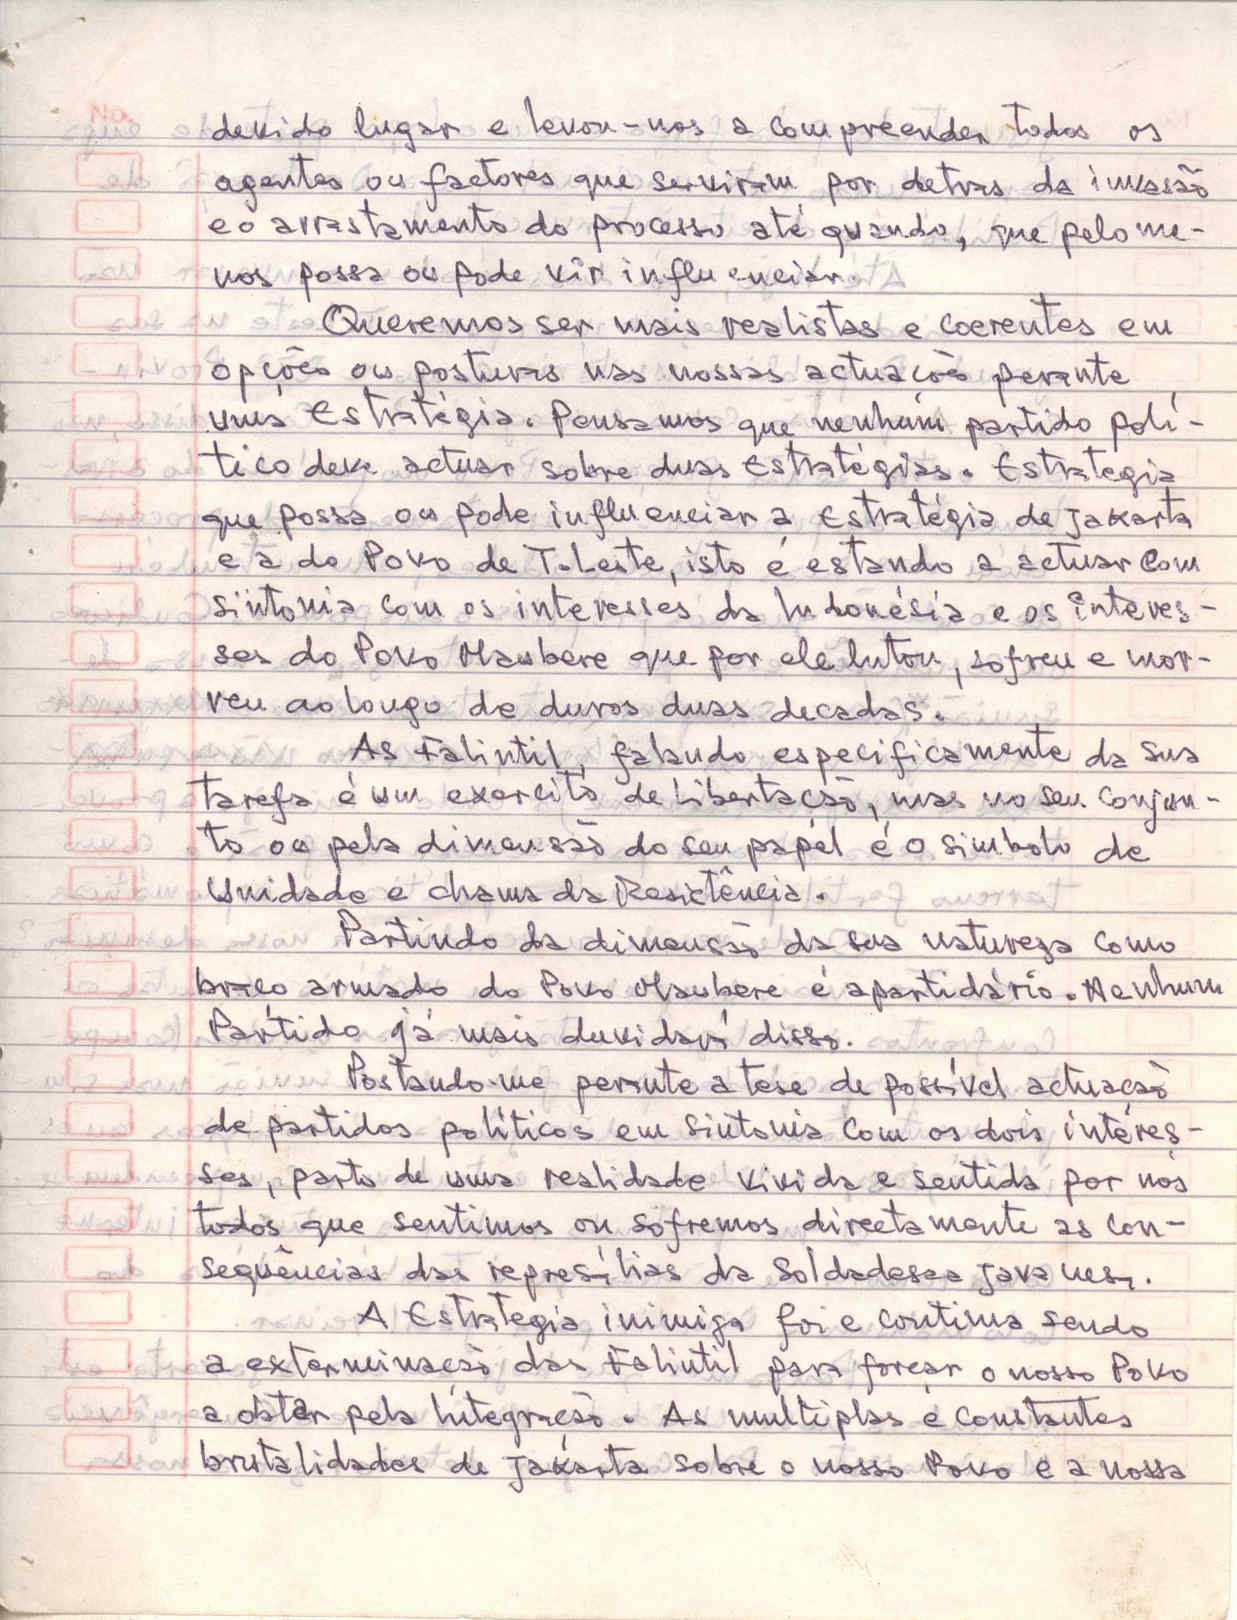 No.
devido lugar e levou-nos a compreender todos os
agentes ou factores que serviram por detras da invasão
e o arrastamento do processo até quando, que pelo me-
nos possa ou pode vir influenciar.
Queremos ser mais realistas e coerentes em
opções ou posturas nas nossas actuações perante
uma Estratégia. Pensamos que nenhum partido polí-
tico deve actuar sobre duas Estratégias. Estrategia
que possa ou pode influenciar a Estratégia de Jakarta
e a do Povo de T. Leste, isto é estando a actuar com
sintonia com os interesses da Indonésia e os interes-
ses do Povo Maubere que por ele lutou, sofreu e mor-
reu ao longo de duros duas decadas.
As Falintil, falando especificamente da sua
tarefa é um exercito de Libertação, mas no seu conjun-
to ou pela dimensão do seu papél é o simbolo de
Unidade e chama da Resistência.
Partindo da dimensão da sua natureza como
braço armado do Povo Maubere é apartidário. Nenhum
Partido já mais duvidará disso.
Postando-me perante a tese de possível actuação
de partidos políticos em sintonia com os dois interes-
ses, parto de uma realidade vivida e sentida por nós
todos que sentimos ou sofremos directamente as con-
seqüências das represálias da soldadesca javanesa.
A Estrategia inimiga foi e continua sendo
a exterminação das Falintil para forçar o nosso Povo
a obtar pela Integração. As multiplas e constantes
brutalidades de Jakarta sobre o nosso Povo e a nossa